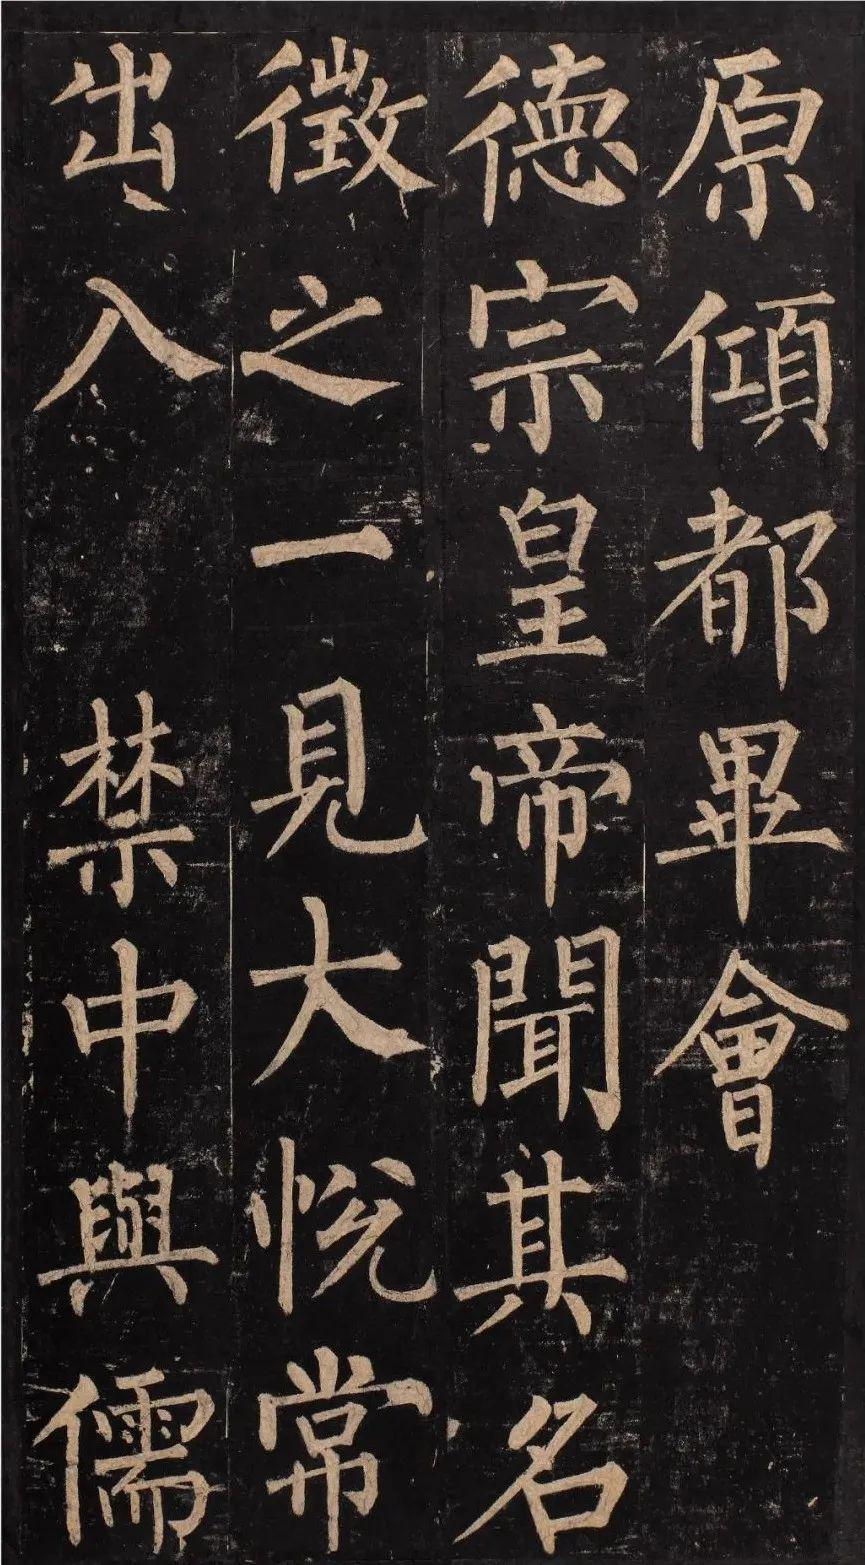 原傾都畢會
德宗皇帝聞其名
徵之一見大悅常
出入禁中與儒